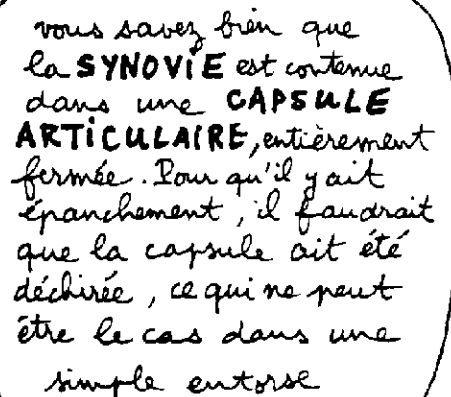 vous savez bien que
la SYNOVIE est contenue
dans une CAPSULE
ARTICULAIRE, entièrement
fermée. Pour qu'il y ait
épanchement, il faudrait
que la capsule ait été
déchirée, ce qui ne peut
être le cas dans une
simple entorse